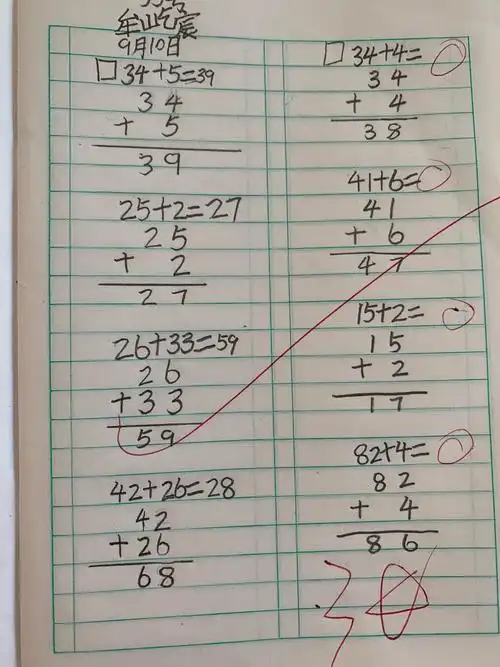 9月10日
□34+5=39
34
+ 5
39
25+2=27
25
+ 2
27
26+33=59
26
+33
59
42+26=28
42
+26
68
□34+4=
34
+ 4
38
41+6=
41
+ 6
47
15+2=
15
+ 2
17
82+4=
82
+ 4
86